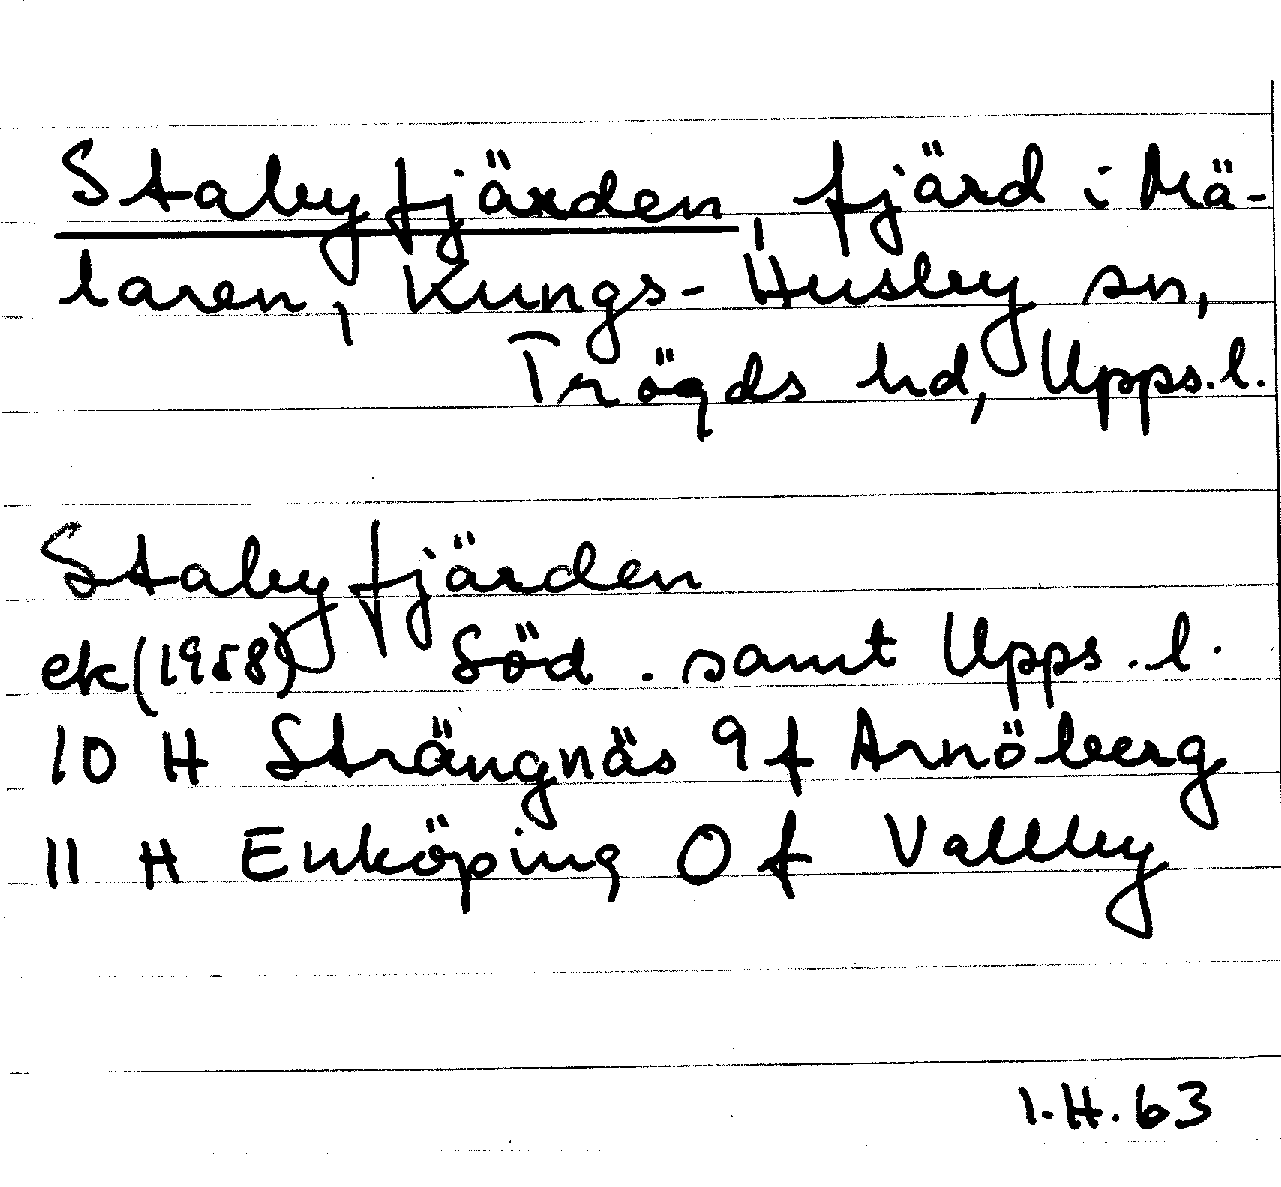 Stabyfjärden, fjärd i Mä-
laren, Kungs-Husby sn,
Trögds hd, Upps.l.
Stabyfjärden
ek(1958) Söd. samt Upps.l.
10 H Strängnäs 9 f Arnöberg
11 H Enköping 0 f Vallby
I.H.63